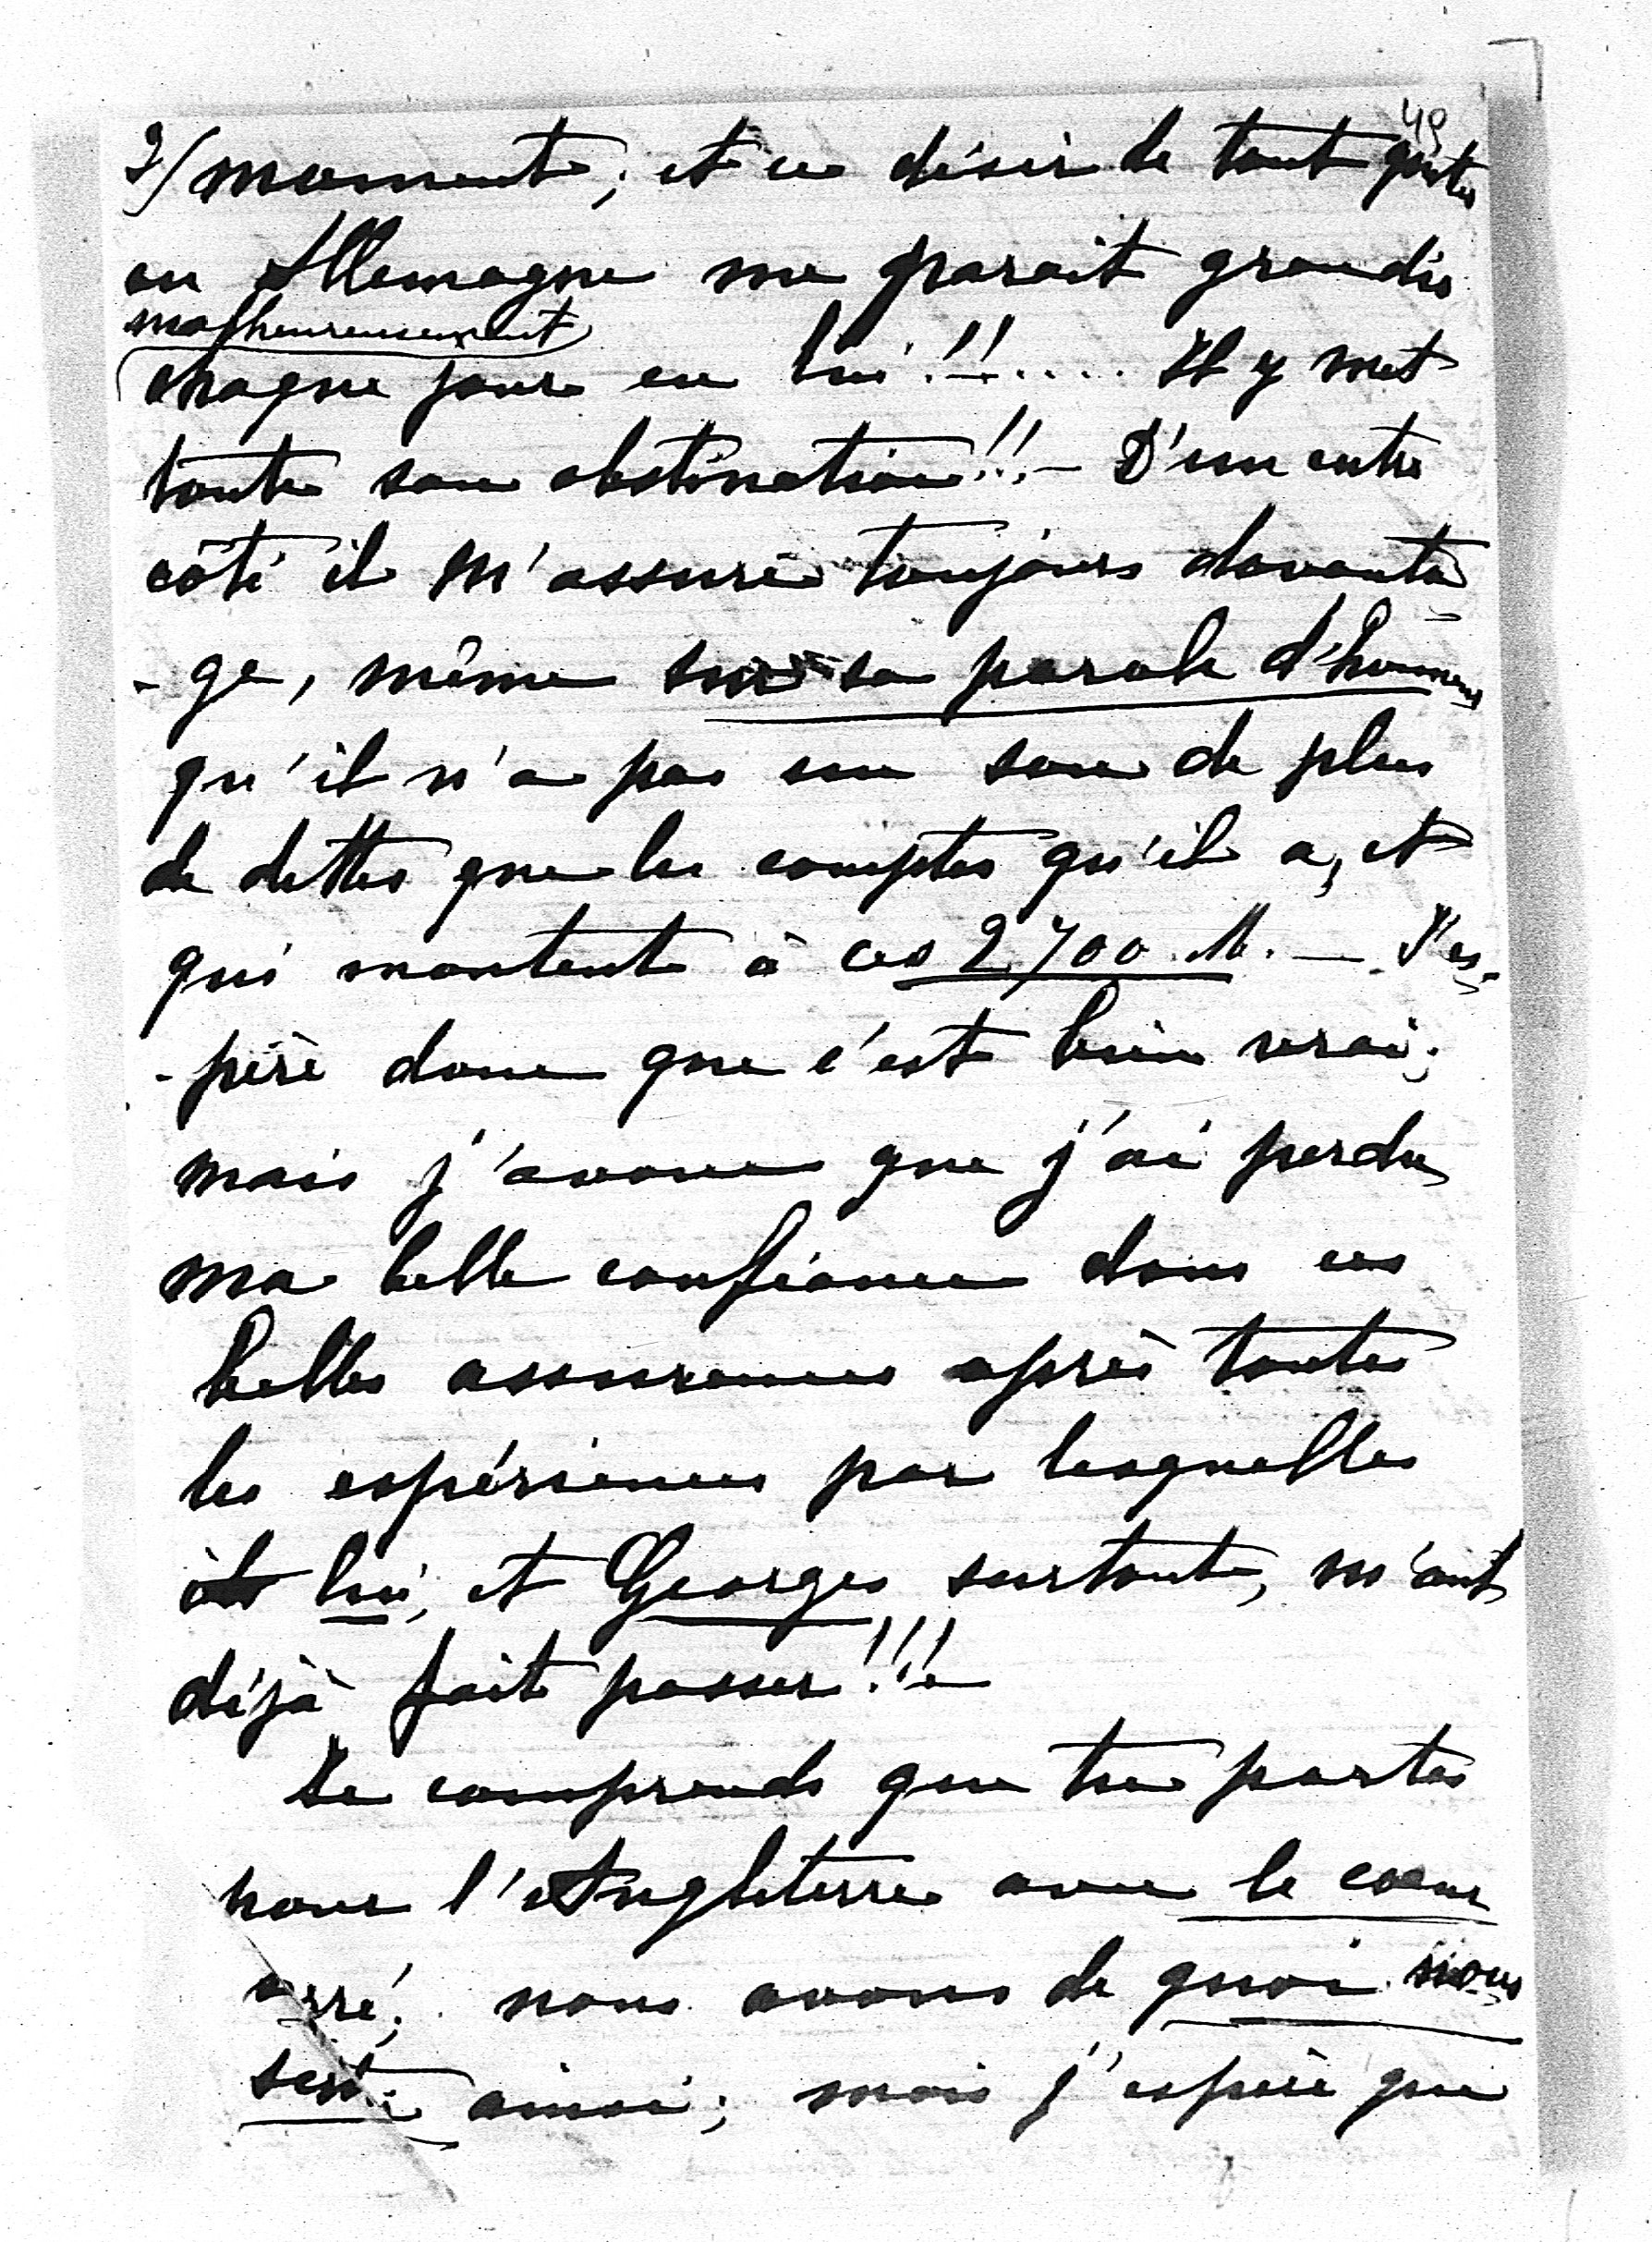 49
2/ moment; et ce désir de tout quitter
en Allemagne me parait grandir
malheureusement
chaque jour en lui!!..... Il y met
toute son obstination!!- D'un autre
côté il m'assure toujours davanta
- ge, même sur sa parole d'honneur
qu'il n'a pas un sou de plus
de dettes que les comptes qu'il a, et
qui montent à ces 2,700 M. — J'es-
- père donc que c'est bien vrai;
mais j'avoue que j'ai perdu
ma belle confiance dans ces
belles assurances après toutes
les expériences par lesquelles
lui, et Georges surtout, m'ont
déjà fait passer!!!
Je comprends que tu partes
pour l'Angleterre avec le cœur
serré; nous avons de quoi nous
sentir ainsi; mais j'espère que